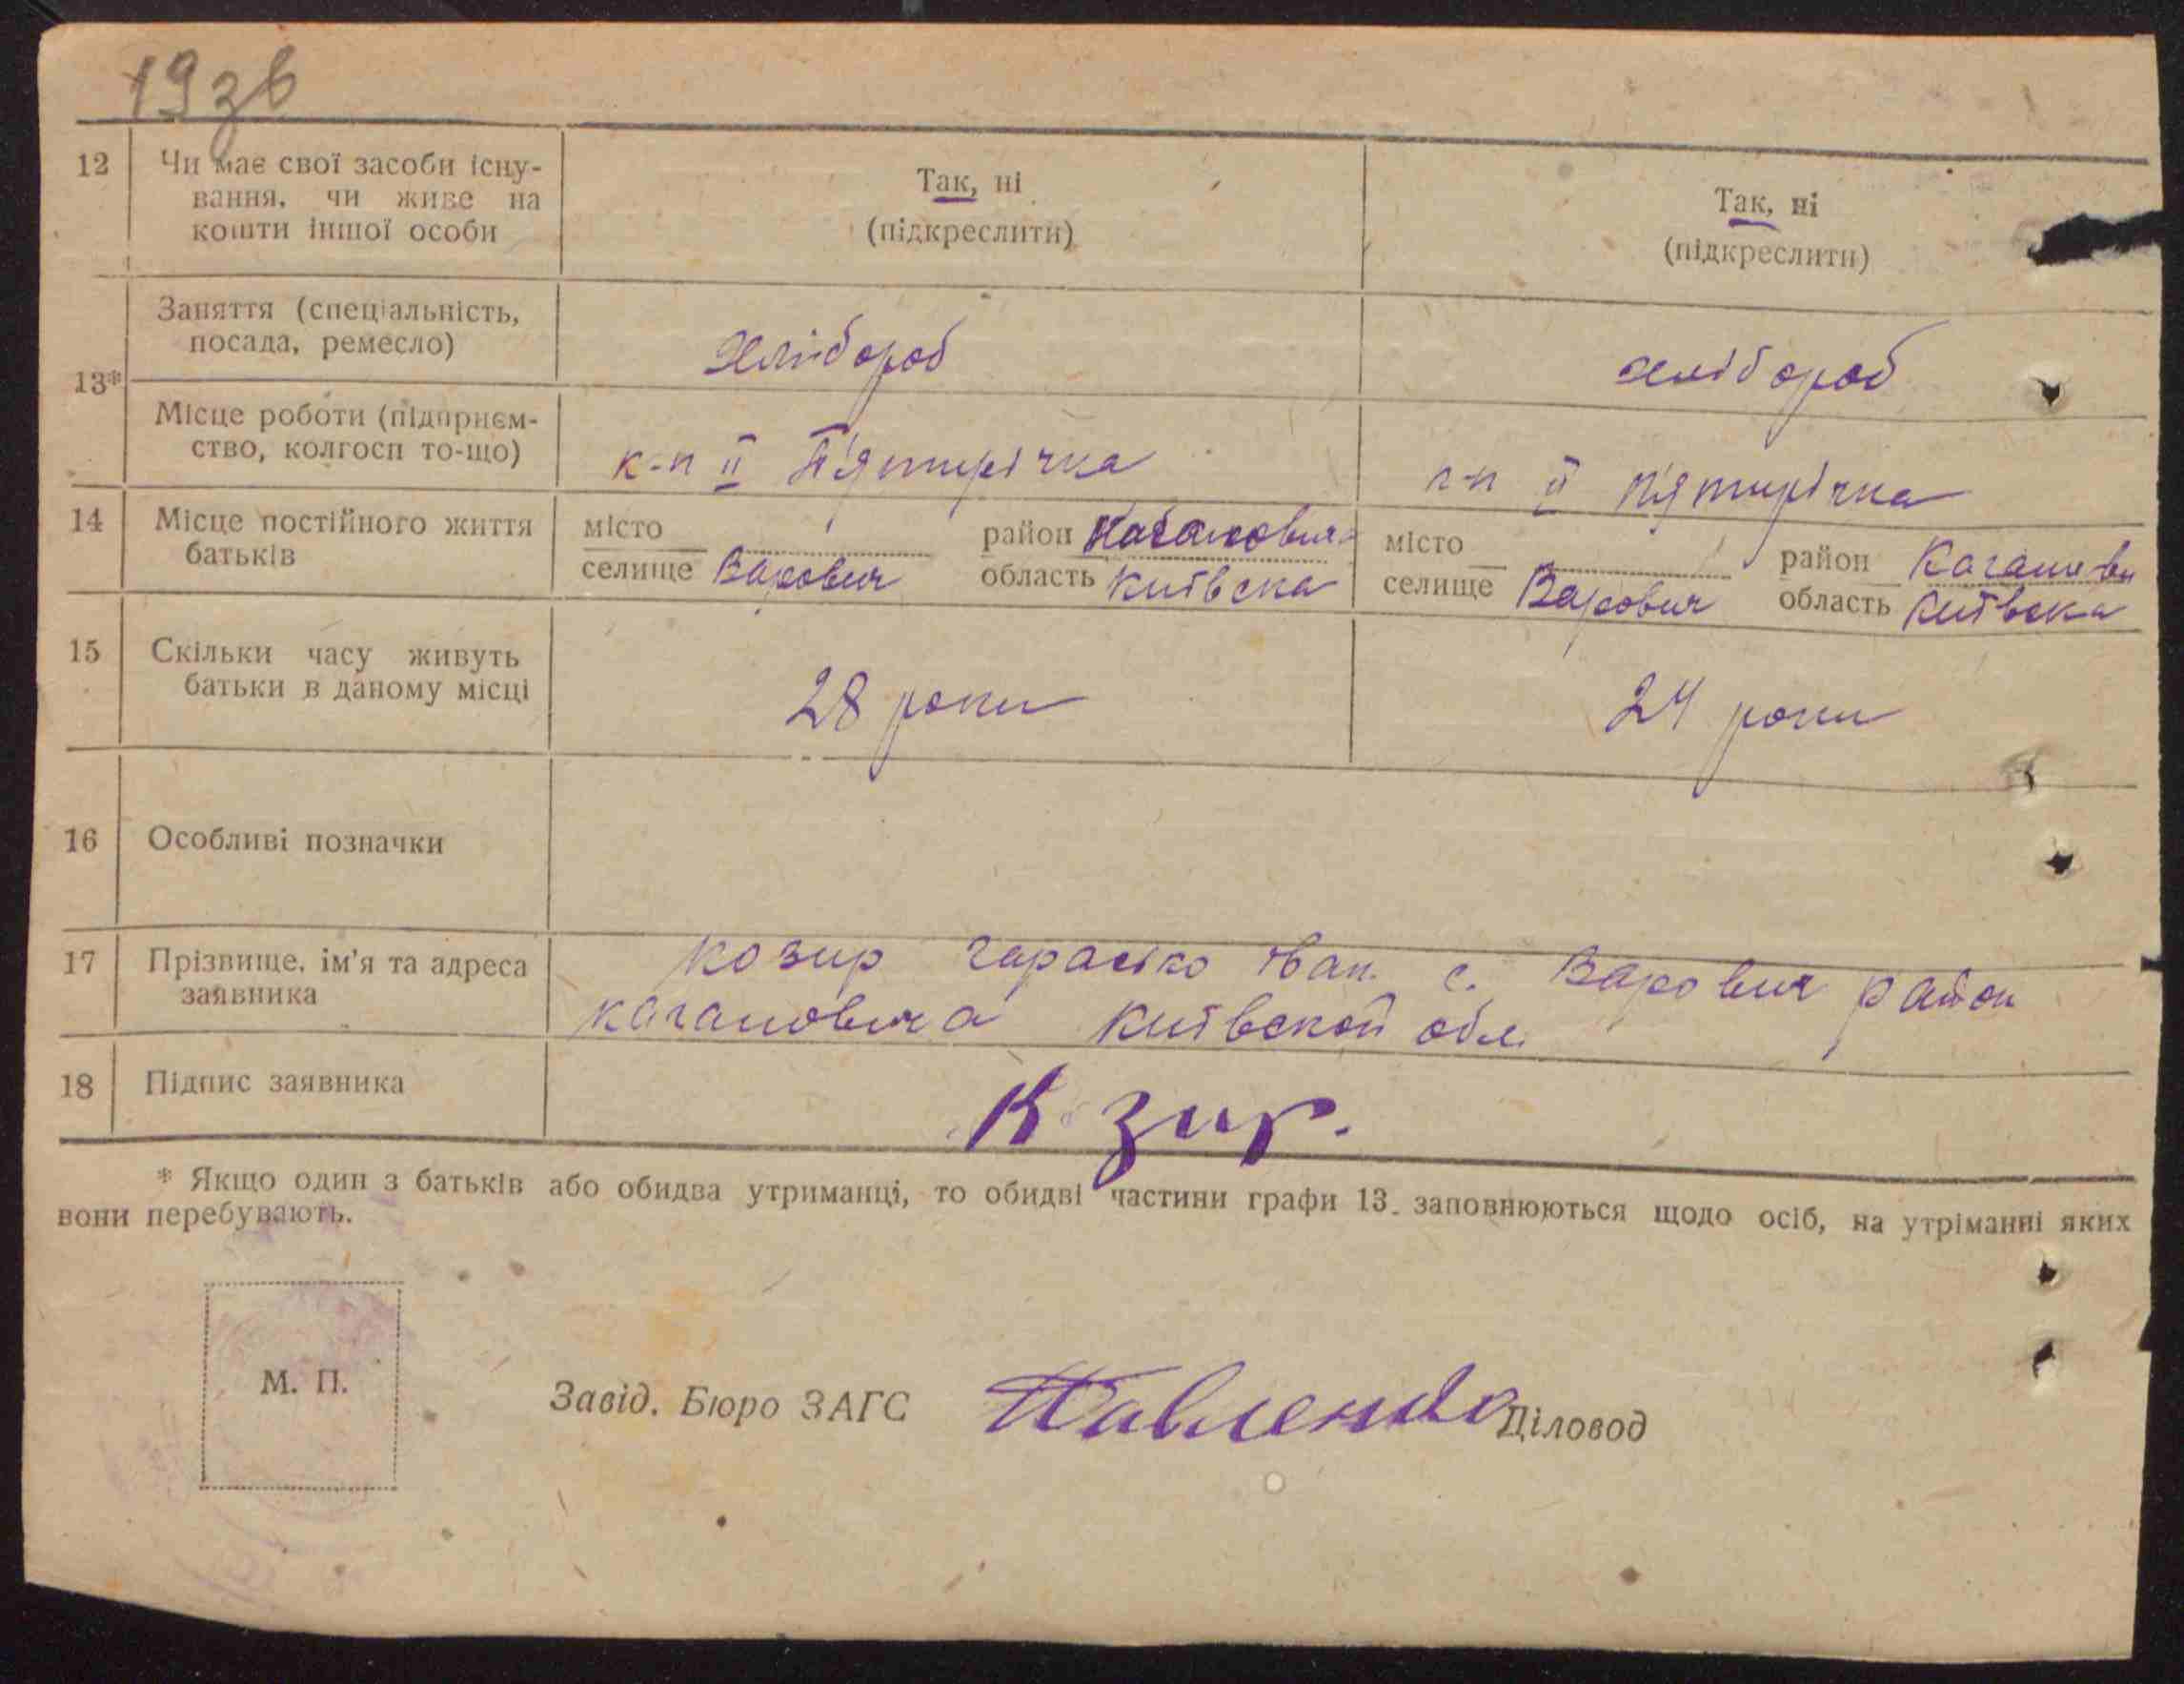 193в
12 Чи має свої засоби існу- Так, ні Так, ні
вання, чи живе на
кошти іншої особи (підкреслити) (підкреслити)
Заняття (спеціальність, Хлібороб хлібороб
посада, ремесло)
13*
Місце роботи (підприєм- к-п II П'ятирічка к-п II П'ятирічка
ство, колгосп то-що)
14 Місце постійного життя місто район Каганович місто район Каганови
батьків селищеВарович область Київска селище Варович область Київска
15 Скільки часу живуть 28 роки 24 роки
батьки в даному місці
16 Особливі позначки
17 Прізвище, ім'я та адреса Козир Гарасько Іван. с. Варович район
заявника Кагановича Київской обл.
18 Підпис заявника К зир.
* Якщо один з батьків або обидва утриманці, то обидві частини графи 13 заповнюються щодо осіб, на утріманні яких
вони перебувають.
М. П. Завід. Бюро ЗАГС Павленко Діловод